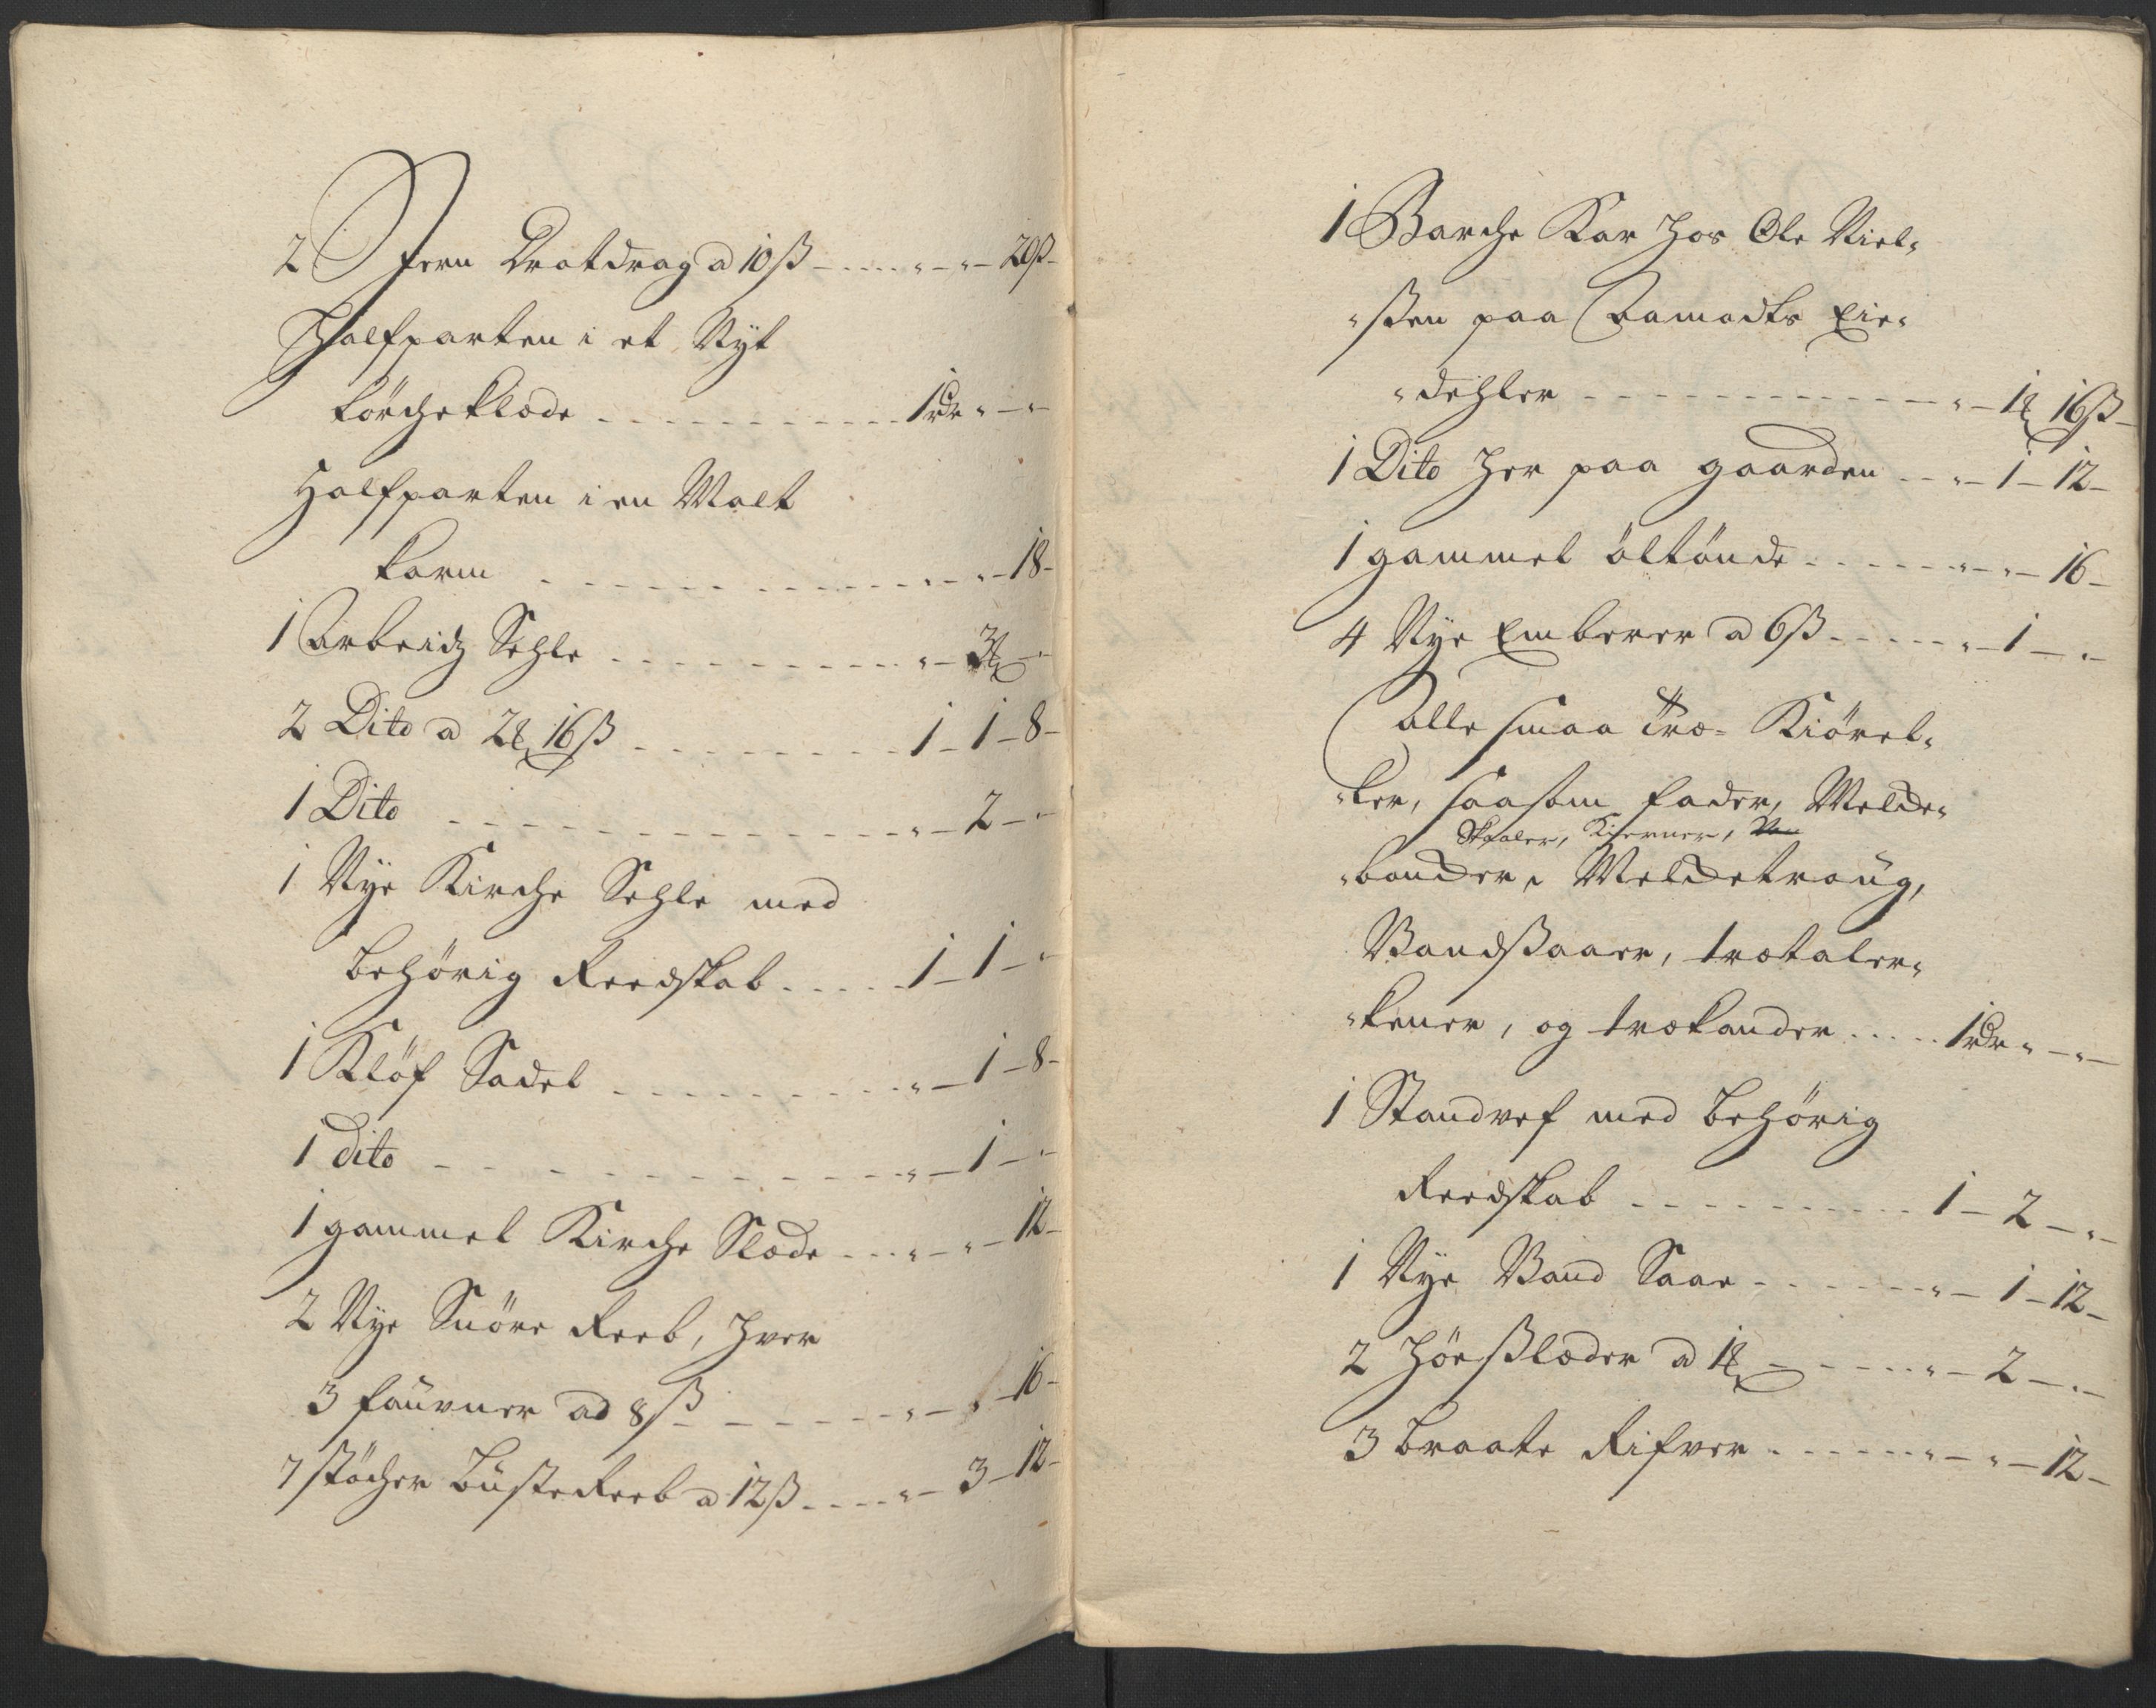 2 Jern Dratdrag a 10 ß - - - - „ - „ - 20 ß -
Halfparten i et Nyt
törcheklæde - - - - - - - - - 1 rdr „ - „
Halfparten i en Malt
karm - - - - - - - - - „ - „ - 18 -
1 Arbeidz Sehle - - - - - - - - „ - 3 ℳ - „
2 Dito a 2 ℳ 16 ß - - - - - - - 1 - 1 - 8 -
1 Dito - - - - - - - - - - - „ - 2 - „
1 Nye Kirche Sehle med
behörig Reedskab - - - - 1 - 1 - „
1 Klöf Sadel - - - - - - - - „ - 1 - 8 -
1 dito - - - - - - - - - - - „ - 1 - „
1 gammel Kirche Slæde - - - „ - „ - 12 -
2 Nye Snöre Reeb, hver
3 faüvner ad 8 ß - - - - - „ - „ - 16 -
7 støcher büste Reeb a 12 ß - - - - „ - 3 - 12 -
1 Barche Kar hos Ole Niel„
„ßen paa Aamodts Eie„
„dehler - - - - - - - - - - - „ - 1 ℳ 16 ß -
1 Dito her paa gaarden - - „ - 1 - 12 -
1 gammel öltönde - - - - - „ - „ - 16 -
4 Nye Emberer a 6 ß - - - - - „ - 1 - „ -
Alle smaa Træ- Kiörel„
„ker, saasom fader, Melde„
Skaaler, Kierner, Van
„bonder, Meldetraüg,
Vandßaaer, trætaler„
„kener, og trækander - - - - 1 rdr „ - „ -
1 Standvef med behörig
Reedskab - - - - - - - - - 1 - 2 - „ -
1 Nye Vand Saae - - - - - - „ - 1 - 12 -
2 Höeßlæder a 1 ℳ - - - - - „ - 2 - „ -
3 braate Rifver - - - - - - „ - „ - 12 -